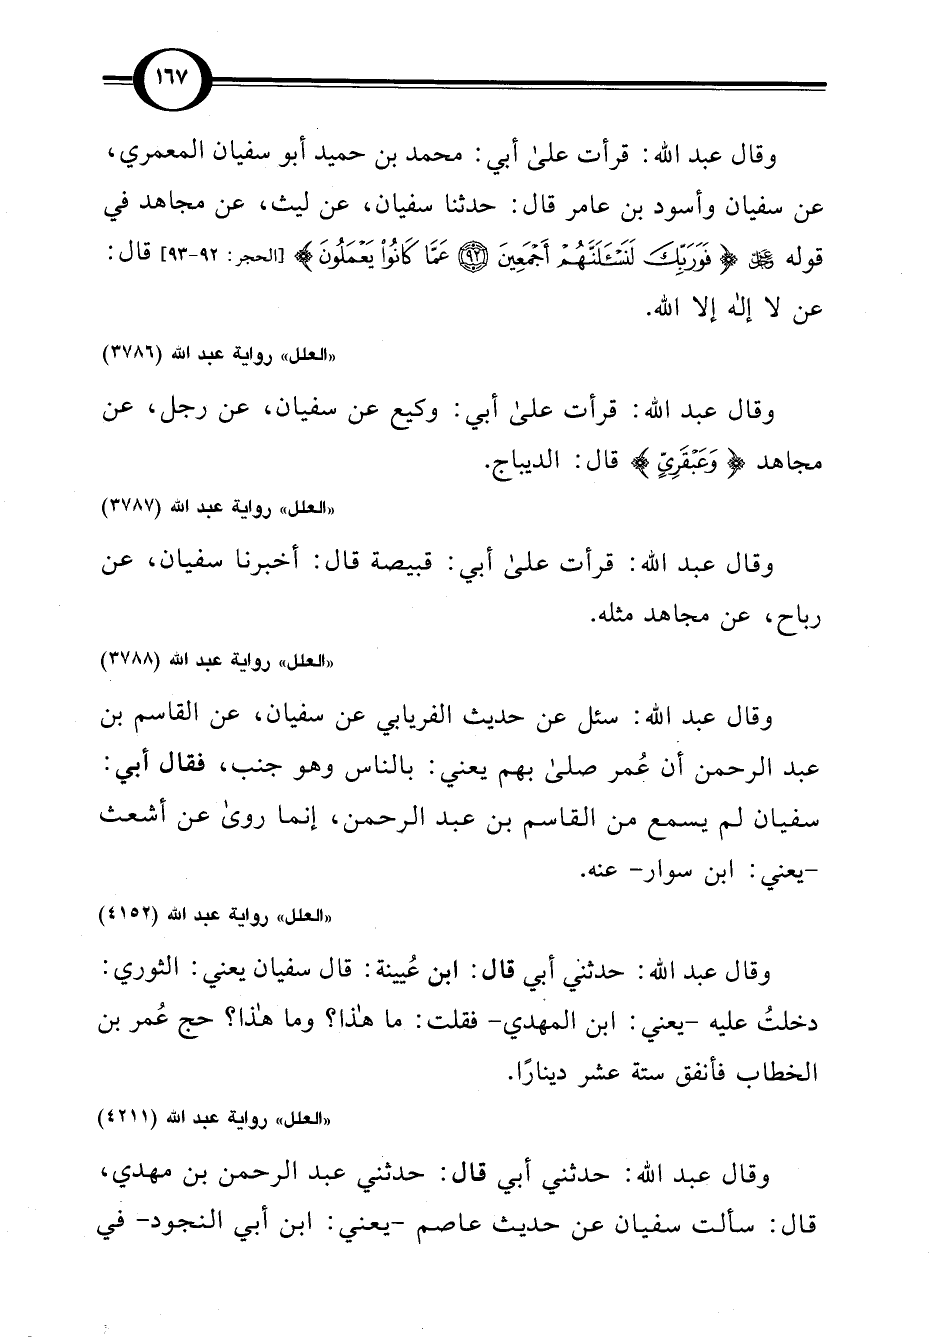 ١٦٧
وقال عبد الله: قرأت علىٰ أبي: محمد بن حميد أبو سفيان المعمري،
عن سفيان وأسود بن عامر قال: حدثنا سفيان، عن ليث، عن مجاهد في
قوله ﷻ ﴿فَوَرَبِّكَ لَنَسْـَٔلَنَّهُمْ أَجْمَعِينَ ٩٢ عَمَّا كَانُوا۟ يَعْمَلُونَ﴾ [الحجر: ٩٢-٩٣] قال:
عن لا إلٰه إلا الله.
«العلل» رواية عبد الله (٣٧٨٦)
وقال عبد الله: قرأت علىٰ أبي: وكيع عن سفيان، عن رجل، عن
مجاهد ﴿وَعَبْقَرِيٍّ﴾ قال: الديباج.
«العلل» رواية عبد الله (٣٧٨٧)
وقال عبد الله: قرأت علىٰ أبي: قبيصة قال: أخبرنا سفيان، عن
رباح، عن مجاهد مثله.
«العلل» رواية عبد الله (٣٧٨٨)
وقال عبد الله: سئل عن حديث الفريابي عن سفيان، عن القاسم بن
عبد الرحمن أن عُمر صلىٰ بهم يعني: بالناس وهو جنب، فقال أبي:
سفيان لم يسمع من القاسم بن عبد الرحمن، إنما روىٰ عن أشعث
-يعني: ابن سوار- عنه.
«العلل» رواية عبد الله (٤١٥٢)
وقال عبد الله: حدثني أبي قال: ابن عُيينة: قال سفيان يعني: الثوري:
دخلتُ عليه -يعني: ابن المهدي- فقلت: ما هٰذا؟ وما هٰذا؟ حج عُمر بن
الخطاب فأنفق ستة عشر دينارًا.
«العلل» رواية عبد الله (٤٢١١)
وقال عبد الله: حدثني أبي قال: حدثني عبد الرحمن بن مهدي،
قال: سألت سفيان عن حديث عاصم -يعني: ابن أبي النجود- في